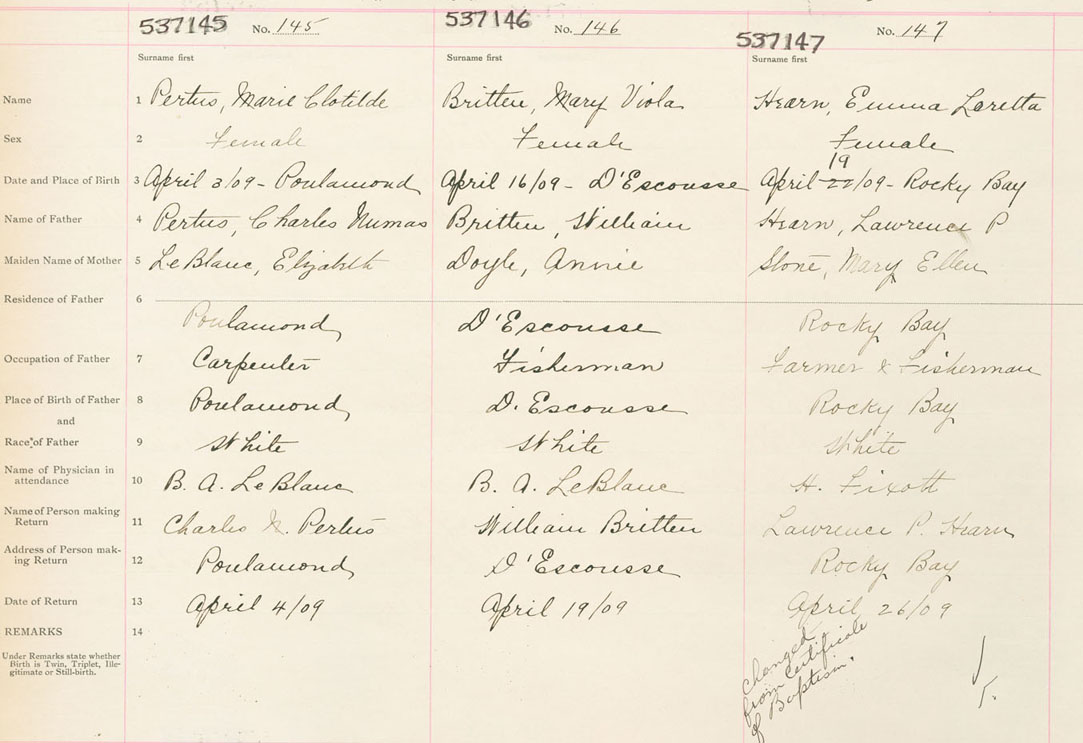 537145 No. 145 537146 No. 146 537147 No. 147
Surname first Surname first Surname first
Name 1 Pertus, Marie Clotilde Britten, Mary Viola Hearn, Emma Loretta
Sex 2 Female Female Female
19
Date and Place of Birth 3 April 3/09 - Poulamond April 16/09 - D'Escousse April 22/09 - Rocky Bay
Name of Father 4 Pertus, Charles Numas Britten, William Hearn, Lawrence P
Maiden Name of Mother 5 LeBlanc, Elizabeth Doyle, Annie Stone, Mary Ellen
Residence of Father 6
Poulamond D'Escousse Rocky Bay
Occupation of Father 7 Carpenter Fisherman Farmer & Fisherman
Place of Birth of Father 8 Poulamond D. Escousse Rocky Bay
and
Race of Father 9 White White White
Name of Physician in
attendance 10 B. A. LeBlanc B. A. LeBlanc H. Fixott
Name of Person making
Return 11 Charles N. Pertus William Britten Lawrence P. Hearn
Address of Person mak-
ing Return 12 Poulamond D'Escousse Rocky Bay
Date of Return 13 April 4/09 April 19/09 April 26/09
REMARKS 14
Under Remarks state whether
Birth is Twin, Triplet, Ille-
gitimate or Still-birth.
changed
from certificate
of Baptism.